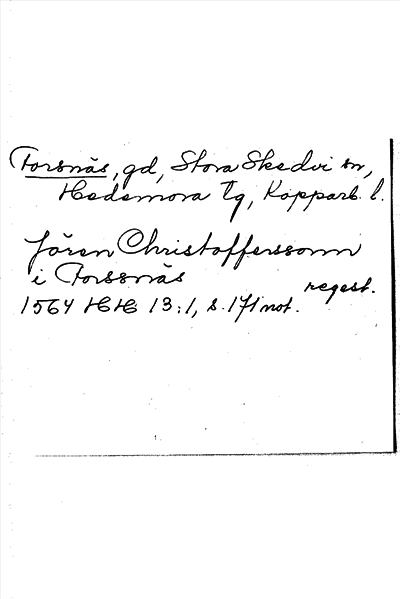 Forsnäs, gd, Stora Skedvi sn,
Hedemora tg, Kopparb. l.
Jören Christoffersson
i Forssnäs
regest.
1564 HH 13:1, s. 171 not.